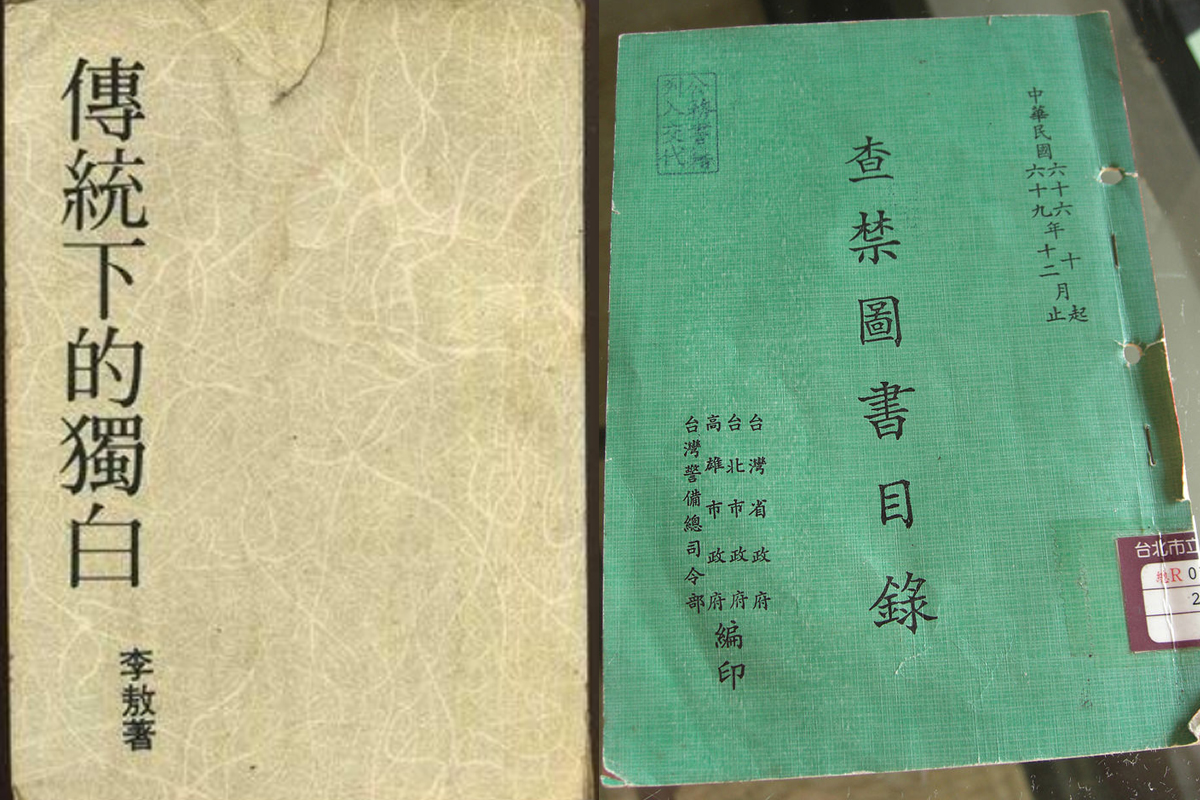 傳統下的獨白
李敖著
中華民國六十六年十月起
六十九年十二月止
查禁圖書目錄
台灣省政府
台北市政府
高雄市政府
台灣警備總司令部
編印
公務書籍
列入交代
台北市立
總R 0
2